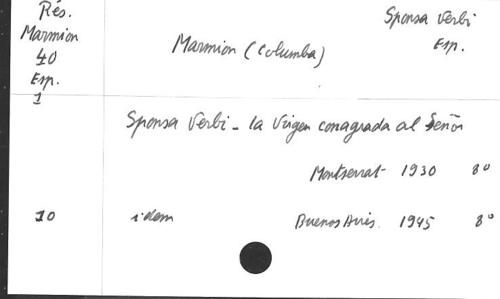 Rés.
Marmion
40
Esp.
1
Sponsa Verbi
Esp.
Marmion (Columba)
Sponsa Verbi - la Virgen conagrada al Señor
Montserrat 1930 8°
10 idem Buenos Aires. 1945 8°